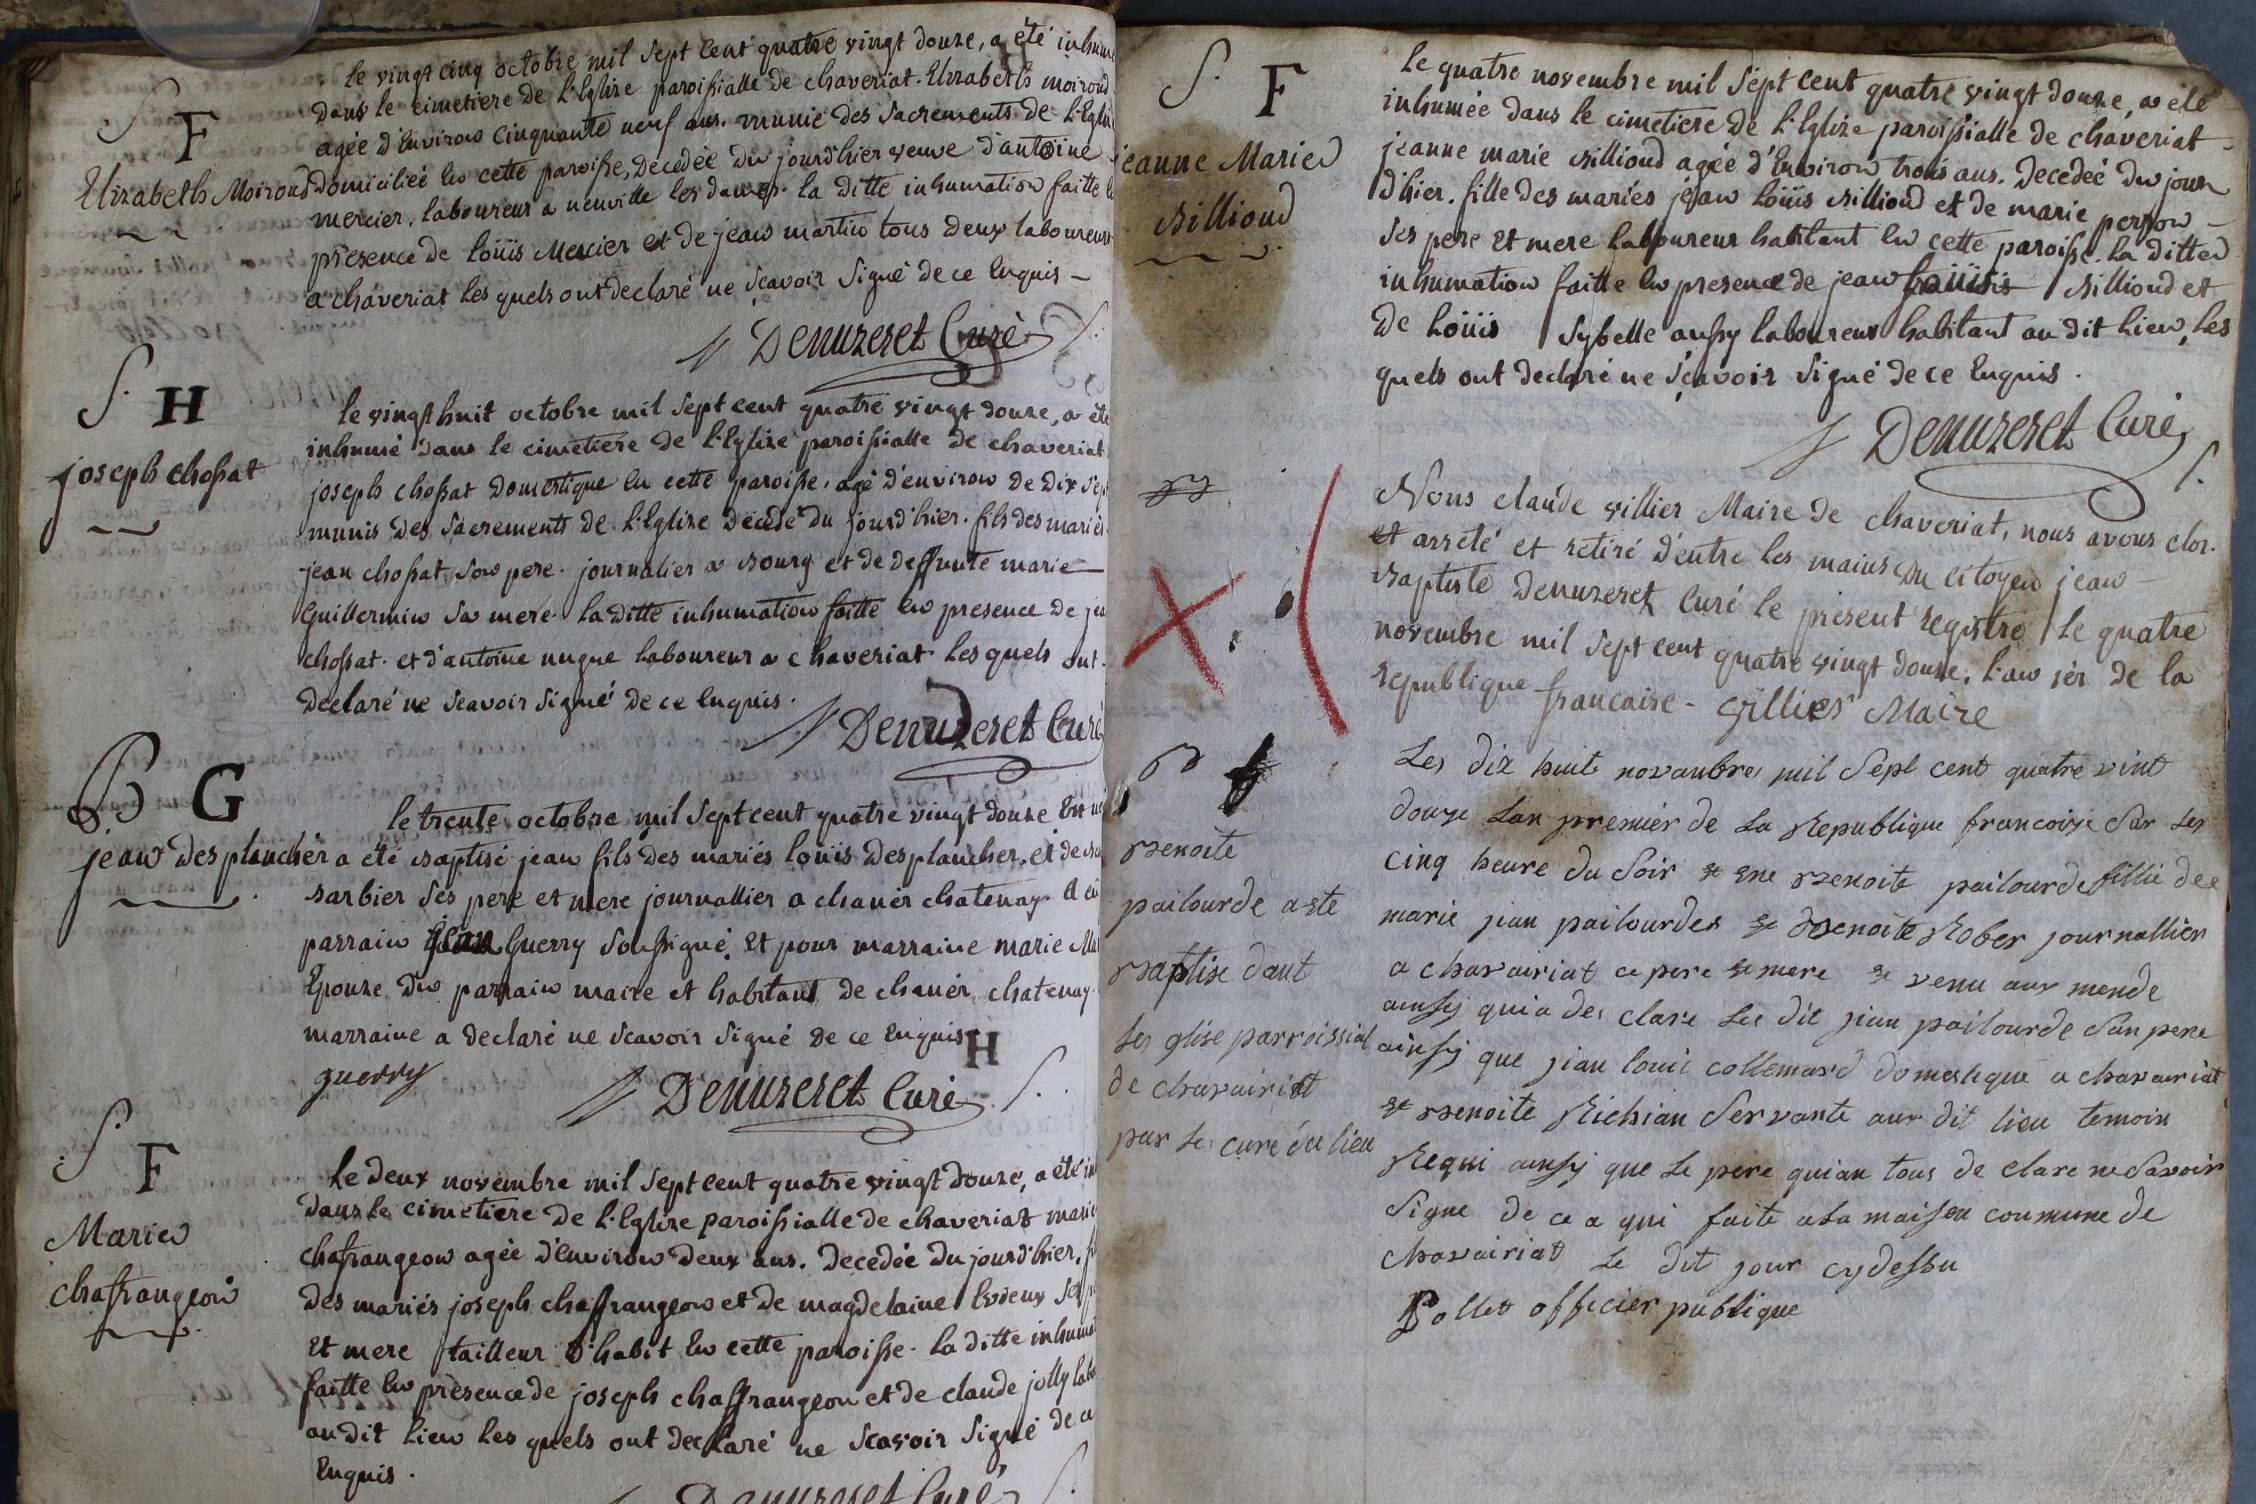 S. F
Elizabeth Moiroud
le vingt cinq octobre mil sept cent quatre vingt douze, a été inhumé
dans le cimetiere de l'Eglize paroissialle de chaveriat. Elizabeth moiroud
agée d'Environ cinquante neuf ans. munie des sacrements de l'Eglize
domiciliée en cette paroisse, Decedée du jourd'hier veuve d'antoine
mercier, laboureur a neuville les dames. la ditte inhumation faitte en
presence de loüis Mercier et de jean martin tous deux laboureurs
a chaveriat les quels ont declaré ne sçavoir signé de ce Enquis
Denuzeret Curé
S. H
joseph chossat
le vingt huit octobre mil sept cent quatre vingt douze, a été
inhumé dans le cimetiere de l'Eglize paroissialle de chaveriat
joseph chossat Domestique en cette paroisse, agé d'environ de dix sept
munis des sacrements de l'Eglize Decedé du jourd'hier. fils des mariés
jean chossat son pere. journalier a Bourg et de deffunte marie
Guillermin sa mere. la ditte inhumation faitte en presence de jean
chossat. et d'antoine nugue laboureur a chaveriat les quels ont
declaré ne scavoir signé de ce Enquis.
Denuzeret Curé
B G
jean Desplancher
le trente octobre mil sept cent quatre vingt douze Est né
a été Baptisé jean fils des mariés loüis Desplancher, et de
Barbier ses pere et mere journallier a chanér chatenay a eû
parrain jean Guerry soussigné, et pour marraine marie
Epouze du parrain maire et habitant de chanér chatenay.
marraine a declaré ne scavoir signé de ce Enquis H
guerry
Denuzeret Curé S.
S. F
Marie
chaffrangeon
le deux novembre mil sept cent quatre vingt douze, a été in
dans le cimetiere de l'Eglize paroissialle de chaveriat marie
chaffrangeon agée d'Environ deux ans. Decedée du jourd'hier, f
des mariés joseph chaffrangeon et de magdelaine Evieux ses p
Et mere tailleur d'habit en cette paroisse. la ditte inhuma
faitte en presence de joseph chaffrangeon et de claude jolly labo
au dit lieu les quels ont declaré ne scavoir signé de ce
Enquis.
Denuzeret Curé S.
S. F
jeanne Marie
Billioud
le quatre novembre mil sept cent quatre vingt douze, a été
inhumée dans le cimetiere de l'Eglize paroissialle de chaveriat
jeanne marie Billioud agée d'Environ trois ans. Decedée du jour
d'hier. fille des mariés jean loüis Billioud et de marie perron
ses pere Et mere laboureur habitant en cette paroisse. la ditte
inhumation faitte en presence de jean loüis Billioud et
De loüis Sybelle aussy laboureur habitant au dit lieu, les
quels ont declaré ne sçavoir signé de ce Enquis.
Denuzeret Curé S.
Nous claude villier Maire de chaveriat, nous avons clos.
et arreté et retiré d'entre les mains Du citoyen jean
Baptiste Denuzeret Curé le present registre le quatre
novembre mil sept cent quatre vingt douze, l'an 1er de la
republique francaise. villier Maire
Benoite
pailourde a ete
Baptise dant
les glise parroissial
de chavairiat
par le curé du lieu
Les dix huit novanbre mil sept cent quatre vint
douze Lan premier de La Republique francoise Sur les
cinq heure du Soir et ene Benoite pailourde fillie dee
marie jian pailourdes et Benoite Rober journallier
a chavairiat ce pere et mere et venu aux monde
ainsy quia des clare Les dit jian pailourde San pere
ainsy que jian louis collemard domestique a chavairiat
et Benoite Richian Servante aux dit lieu temoin
Requi ainsy que Le pere quian tous de clare ne Savoir
Signe de ce a qui faite a La maison coumune de
chavairiat Le dit jour cy dessu
Pollet officier publique